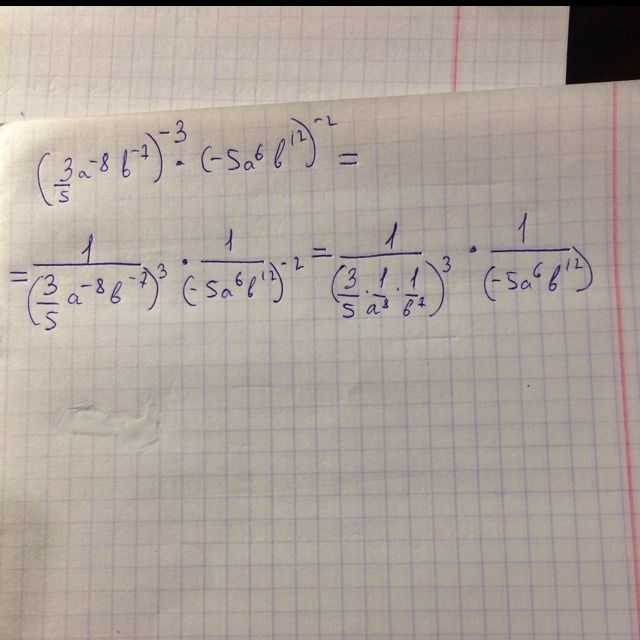 (3/5 a⁻⁸ b⁻⁷)⁻³ · (-5a⁶ b¹²)⁻² =
= 1/(3/5 a⁻⁸ b⁻⁷)³ · 1/(-5a⁶ b¹²)⁻² = 1/(3/5 · 1/a⁸ · 1/b⁷)³ · 1/(-5a⁶ b¹²)